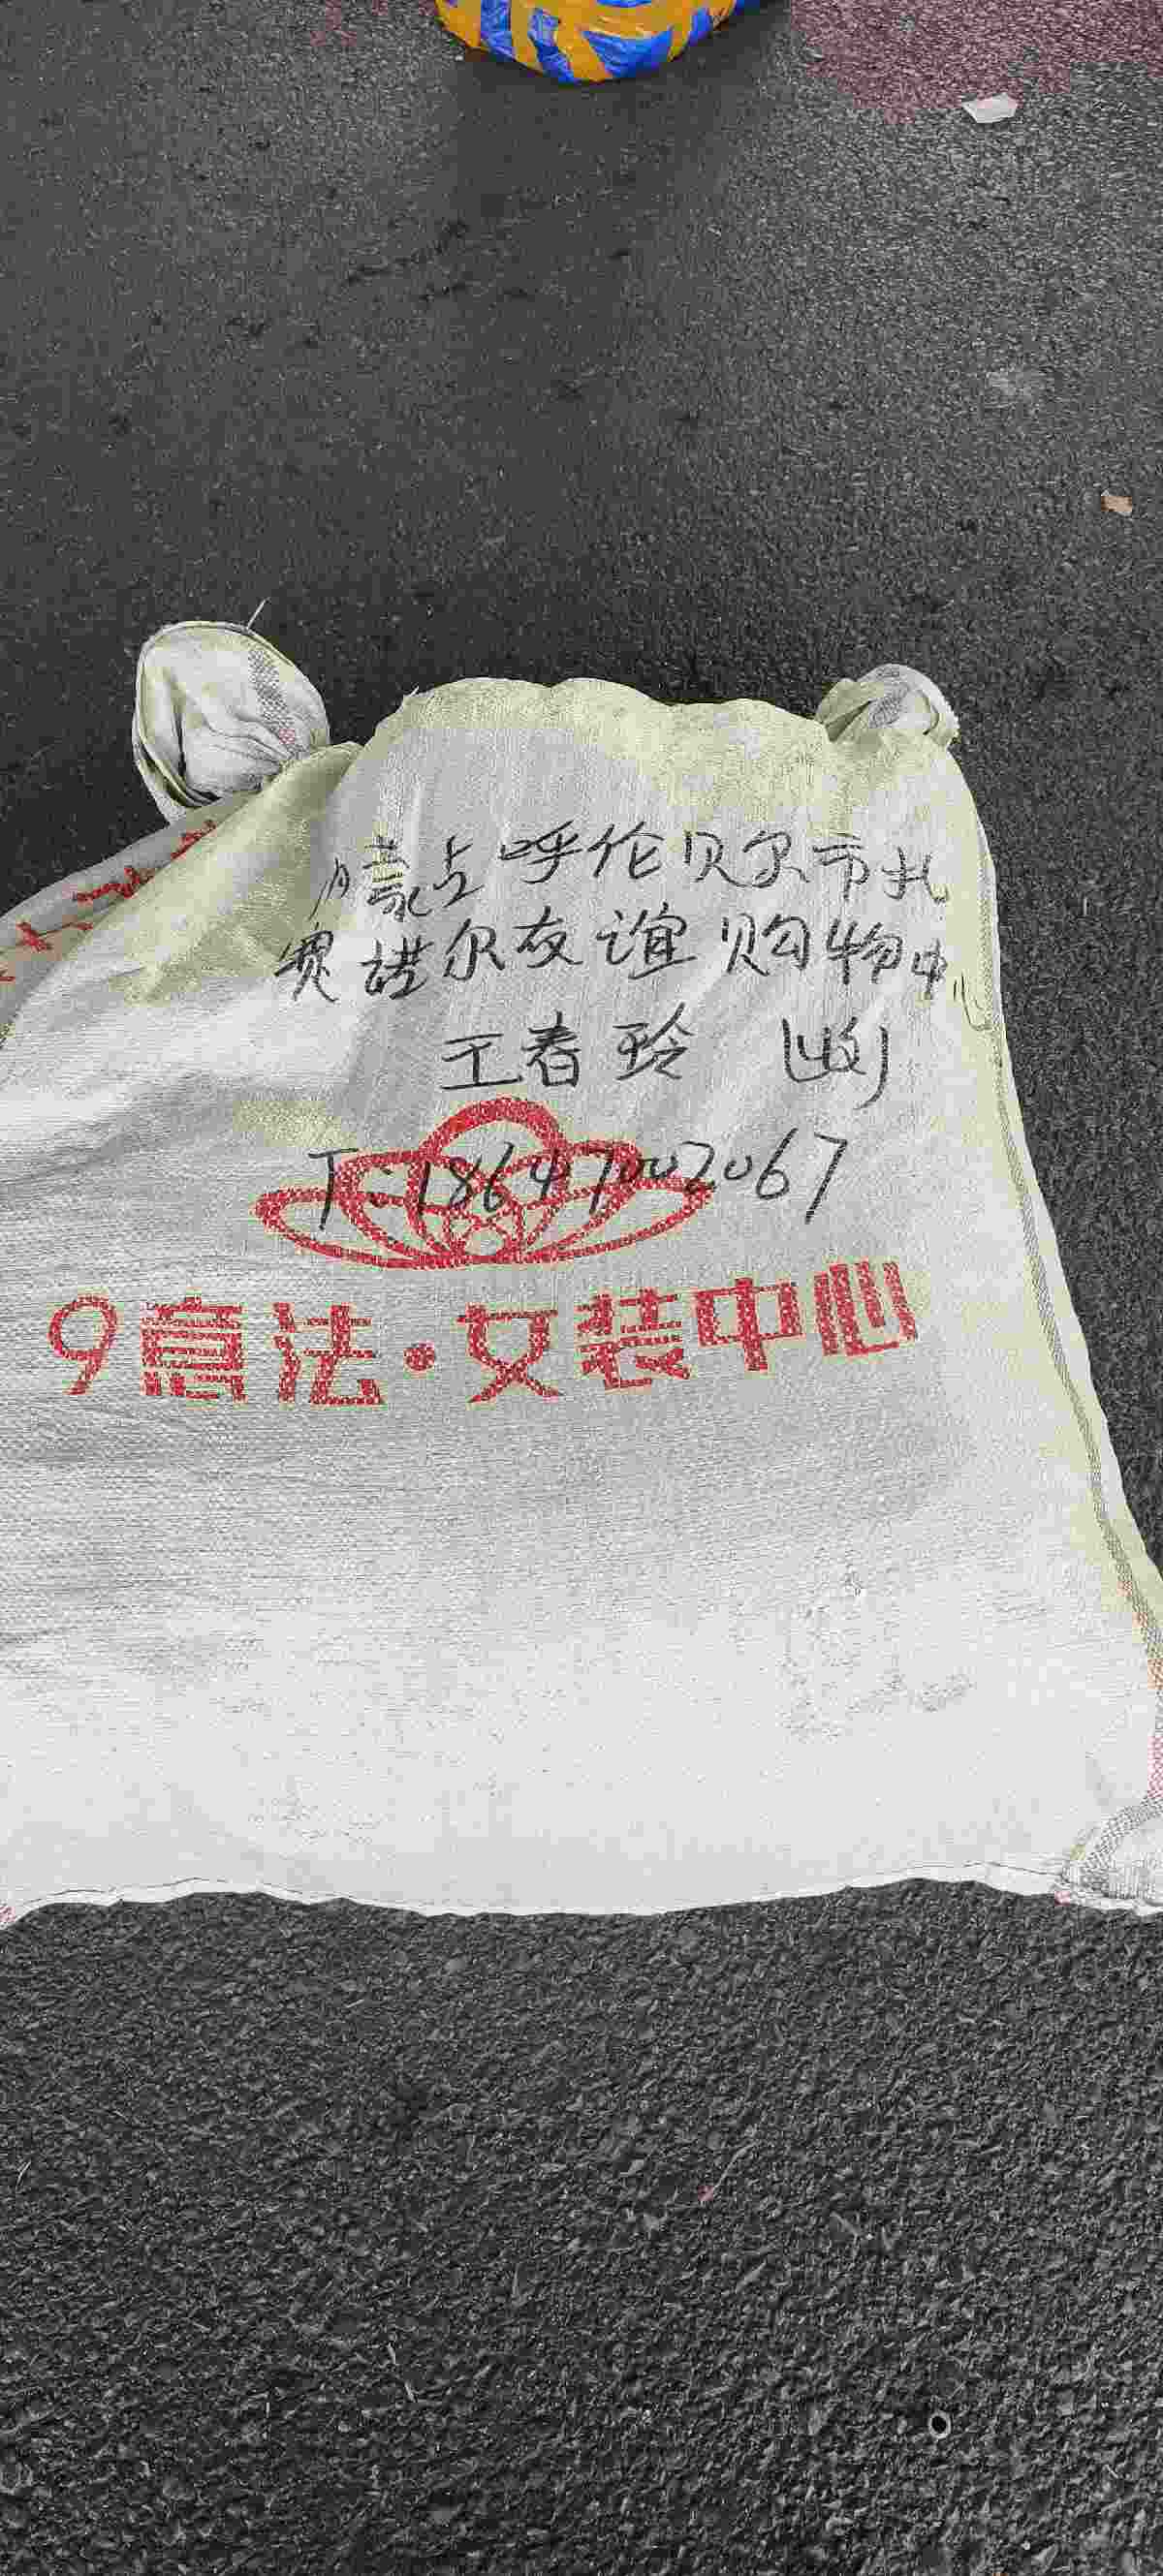 内蒙古呼伦贝尔市扎
赉诺尔友谊购物中心
王春玲 (收)
T:18647002067
9意法·女装中心